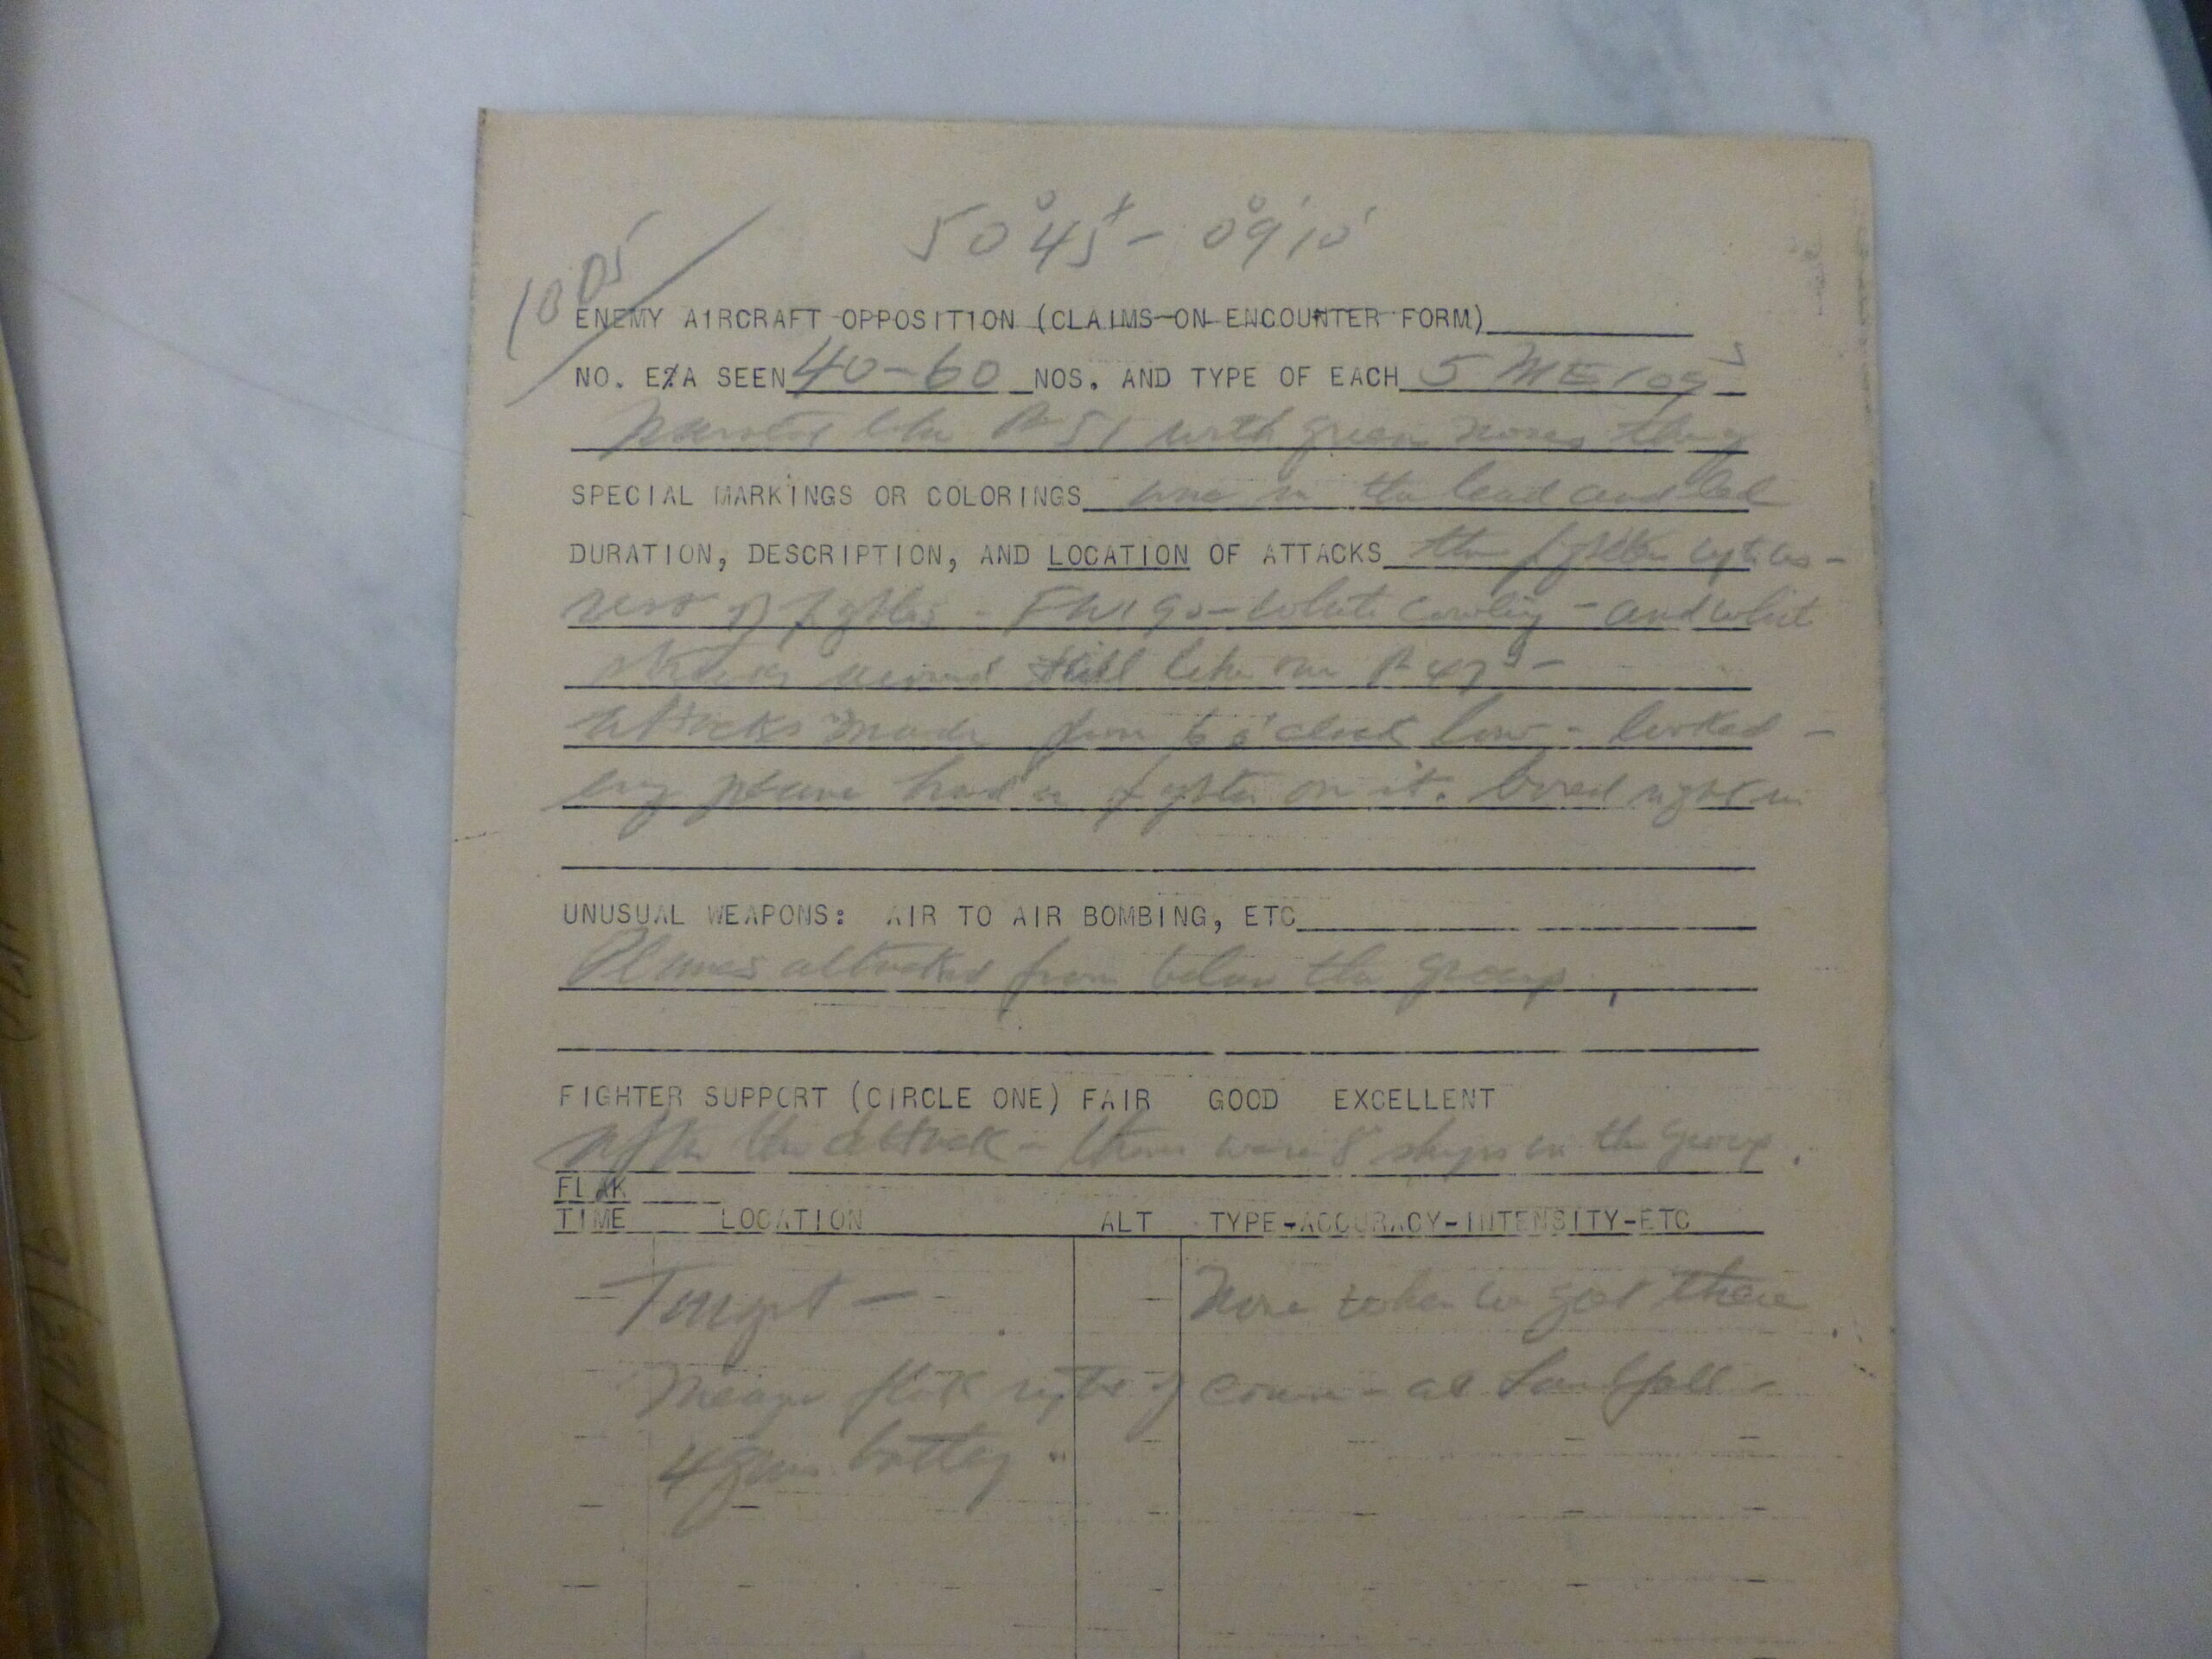 50°45' - 09°10'
1005
ENEMY AIRCRAFT OPPOSITION (CLAIMS ON ENCOUNTER FORM)
NO. E/A SEEN 40-60 NOS. AND TYPE OF EACH 5 ME109s
painted like P-51 with green noses they
SPECIAL MARKINGS OR COLORINGS were in the lead and led
DURATION, DESCRIPTION, AND LOCATION OF ATTACKS the fighter
rest of fighters - FW190 - white cowling - and white
around tail like our P-47s -
attacks made from 6 o'clock low - looked -
plane had a fighter on it. bored right in
UNUSUAL WEAPONS: AIR TO AIR BOMBING, ETC
Planes attacked from below the group
FIGHTER SUPPORT (CIRCLE ONE) FAIR GOOD EXCELLENT
After the attack - there were 8 ships in the group.
FLAK
TIME LOCATION ALT TYPE-ACCURACY-INTENSITY-ETC
Target - None when we got there
Meager flak right of course - at landfall -
4 gun battery